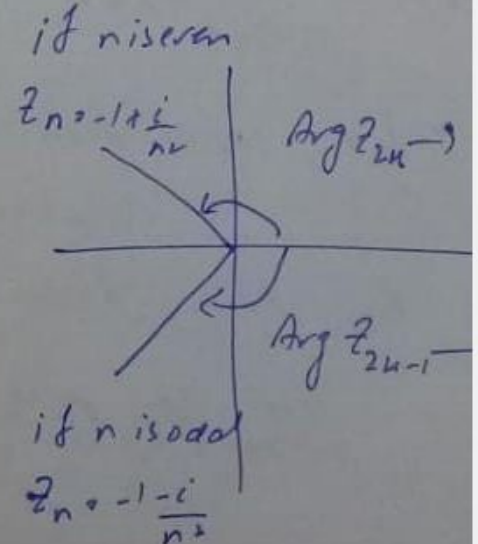 if n is even
Zn = -1 + i/n²
Arg Z2n →
Arg Z2n-1 —
if n is odd
Zn = -1 - i/n²